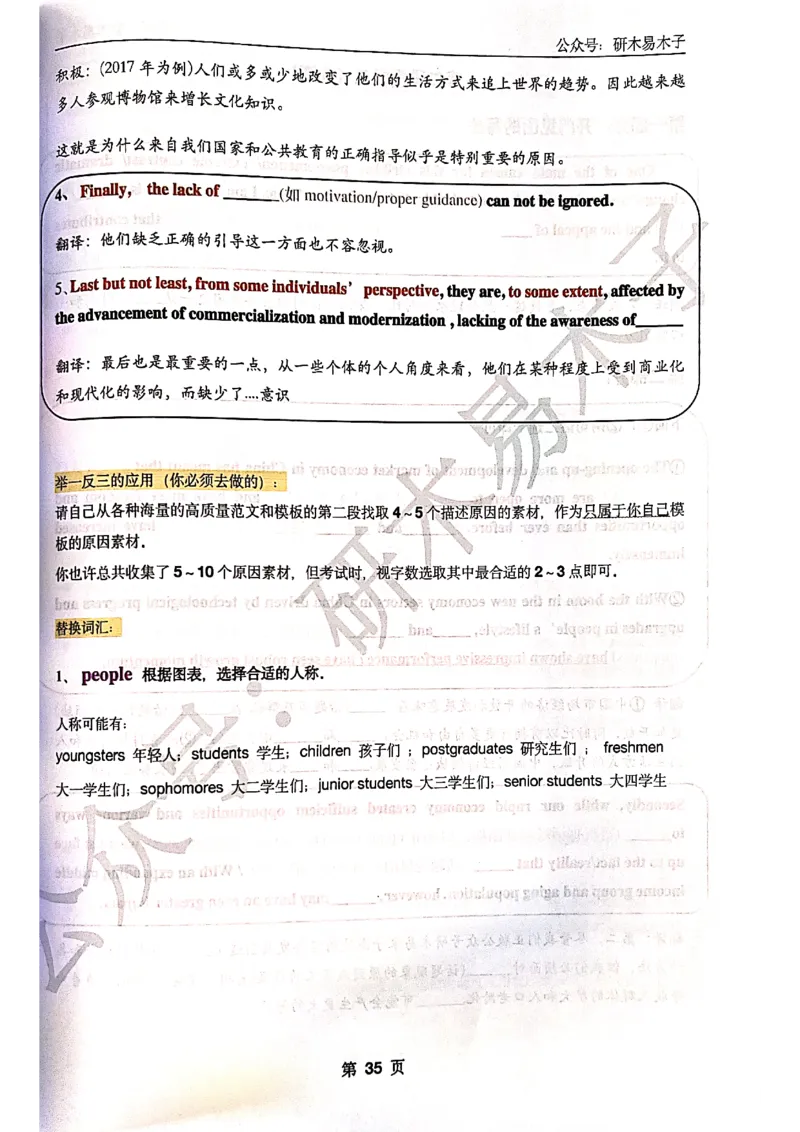 公众号：研木易木子
积极：(2017 年为例)人们或多或少地改变了他们的生活方式来追上世界的趋势。因此越来越
多人参观博物馆来增长文化知识。
这就是为什么来自我们国家和公共教育的正确指导似乎是特别重要的原因。
4、 Finally, the lack of ______(如 motivation/proper guidance) can not be ignored.
翻译：他们缺乏正确的引导这一方面也不容忽视。
5、Last but not least, from some individuals' perspective, they are, to some extent, affected by
the advancement of commercialization and modernization , lacking of the awareness of_____
翻译：最后也是最重要的一点，从一些个体的个人角度来看，他们在某种程度上受到商业化
和现代化的影响，而缺少了....意识
举一反三的应用（你必须去做的）：
请自己从各种海量的高质量范文和模板的第二段找取 4~5 个描述原因的素材，作为只属于你自己模
板的原因素材．
你也许总共收集了 5~10 个原因素材，但考试时，视字数选取其中最合适的 2~3 点即可．
替换词汇：
1、 people 根据图表，选择合适的人称．
人称可能有：
youngsters 年轻人；students 学生；children 孩子们 ；postgraduates 研究生们 ； freshmen
大一学生们；sophomores 大二学生们；junior students 大三学生们；senior students 大四学生
公众号：研木易木子
第 35 页